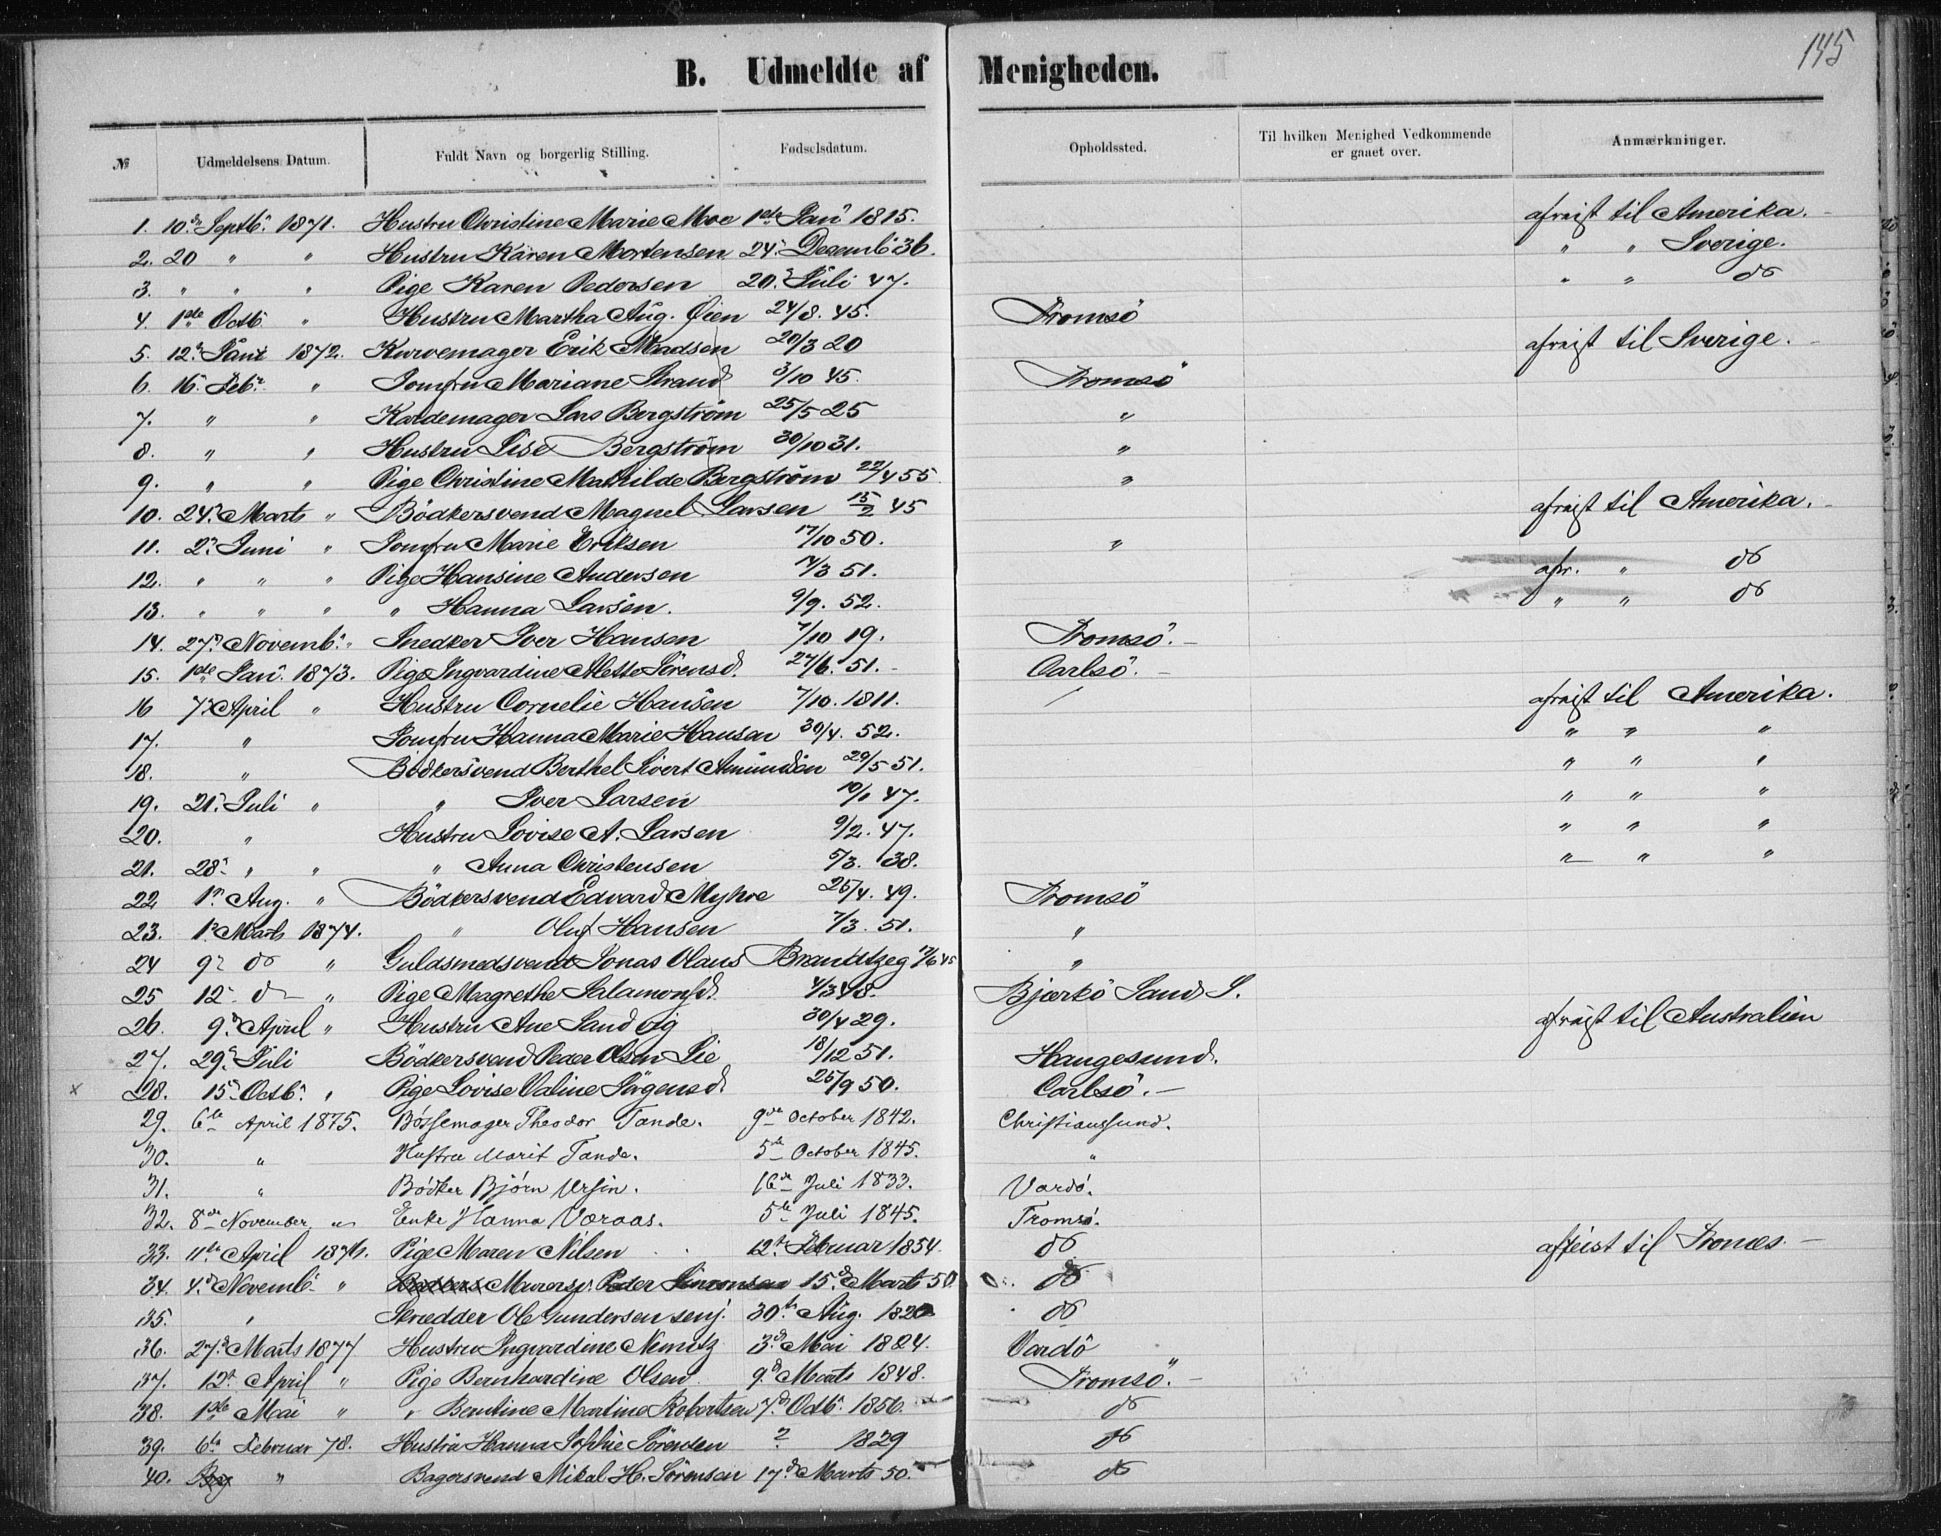 145
B. Udmeldte af Menigheden.
№ Udmeldelsens Datum. Fuldt Navn og borgerlig Stilling. Fødselsdatum. Opholdssted. Til hvilken Menighed Vedkommende er gaaet over. Anmærkninger.
1. 10de Septb. 1871. Hustru Christine Marie Moe 1ste Jan. 1815. afreist til Amerika.
2. 20 " " Hustru Karen Mortensen 24. Decemb 36. " " Sverige.
3. " " " Pige Karen Pedersen 20. Juli 47. " " do
4. 1ste Octb. " Hustru Martha Aug. Øien 24/8. 45. Tromsö
5. 12. Jan. 1872. Kurvemager Erik Madsen 20/3 20 afreist til Sverige.
6. 16. Feb. " Jomfru Mariane Strand 3/10 45. Tromsö
7. " " Kardemager Lars Bergström 25/5 25 "
8. " " Hustru Lise Bergström 30/10 31. "
9. " " Pige Christine Mathilde Bergström 22/4 55 "
10. 24. Marts " Bödkersvend Magnel Larsen 15/2 45 afreist til Amerika.
11. 2. Juni " Jomfru Marie Eriksen 17/10 50. " afr. " do
12. " " " Pige Hansine Andersen 7/3 51. " " do
13. " " " " Hanna Larsen. 9/9. 52.
14. 27. Novemb. " Snedker Iver Hansen 7/10 19. Tromsö. -
15. 1ste Jan. 1873. Pige Ingvardine Alette Sörensd. 27/6. 51. - Carlsö. -
16 7. April " Hustru Cornelie Hansen 7/10. 1811. afreist til Amerika.
17. " Jomfru Hanna Marie Hansen 30/4. 52. " " "
18. " Bödkersvend Berthel Sivert Amundsen 29/5 51. " " "
19. 21. Juli " " Iver Larsen 10/1 47. " " "
20. " Hustru Lovise A. Larsen 9/2. 47. " " "
21. 28. " " " Anna Christensen 5/3. 38. " " "
22 1. Aug. " Bödkersvend Edvard Myhre 25/4. 49. Tromsö
23. 1. Marts 1874. " Oluf Hansen 7/3. 51. "
24 9. do " Guldsmedsvend Jonas Olaus Brandtzeg 17/6 45 "
25 12. do " Pige Magrethe Salamonsd. 4/3 48. Bjærkö Sand S.
26. 9. April " Hustru Ane Sandvig 30/4 29. afreist til Australien
27. 29. Juli Bödkersvend Peder Olsen Lie 18/12 51. Haugesund.
x 28. 15. Octb. " Pige Lovise Valine Jörgensd. 25/9 50. Carlsö. -
29. 6te April 1875. Bösse­mager Theodor Tande. 9de October 1842. Christianssund.
30. " Hustru Marit Tande. 5te October 1845. "
31. " Bödker Bjørn Ursin. 16de Juli 1833. Vardö.
32. 8de November " Enke Hanna Voraas. 5te Juli 1845. Tromsö.
33. 11te April 1876. Pige Maren Nilsen 12te Februar 1854. do afreist til Tronæs. -
34. 4. Novemb. " Murersv. Peder Simonsen 15. Marts 50. do
35. " Skrædder Ole Gundersen senj. 30te Aug. 1820 do
36. 27. Marts 1877 Hustru Ingvardine Nemitz 3. Mai 1824. Vardö
37. 12. April " Pige Bernhardine Olsen 9. Marts 1848. Tromsö. -
38. 1ste Mai " " Berntine Martine Robertsen 7. Octb. 1856. do
39. 6te Februar 78. Hustru Hanna Sophie Sörensen ? 1829 do
40. " Bagersvend Mikal H. Sörensen 17. Marts 50. do